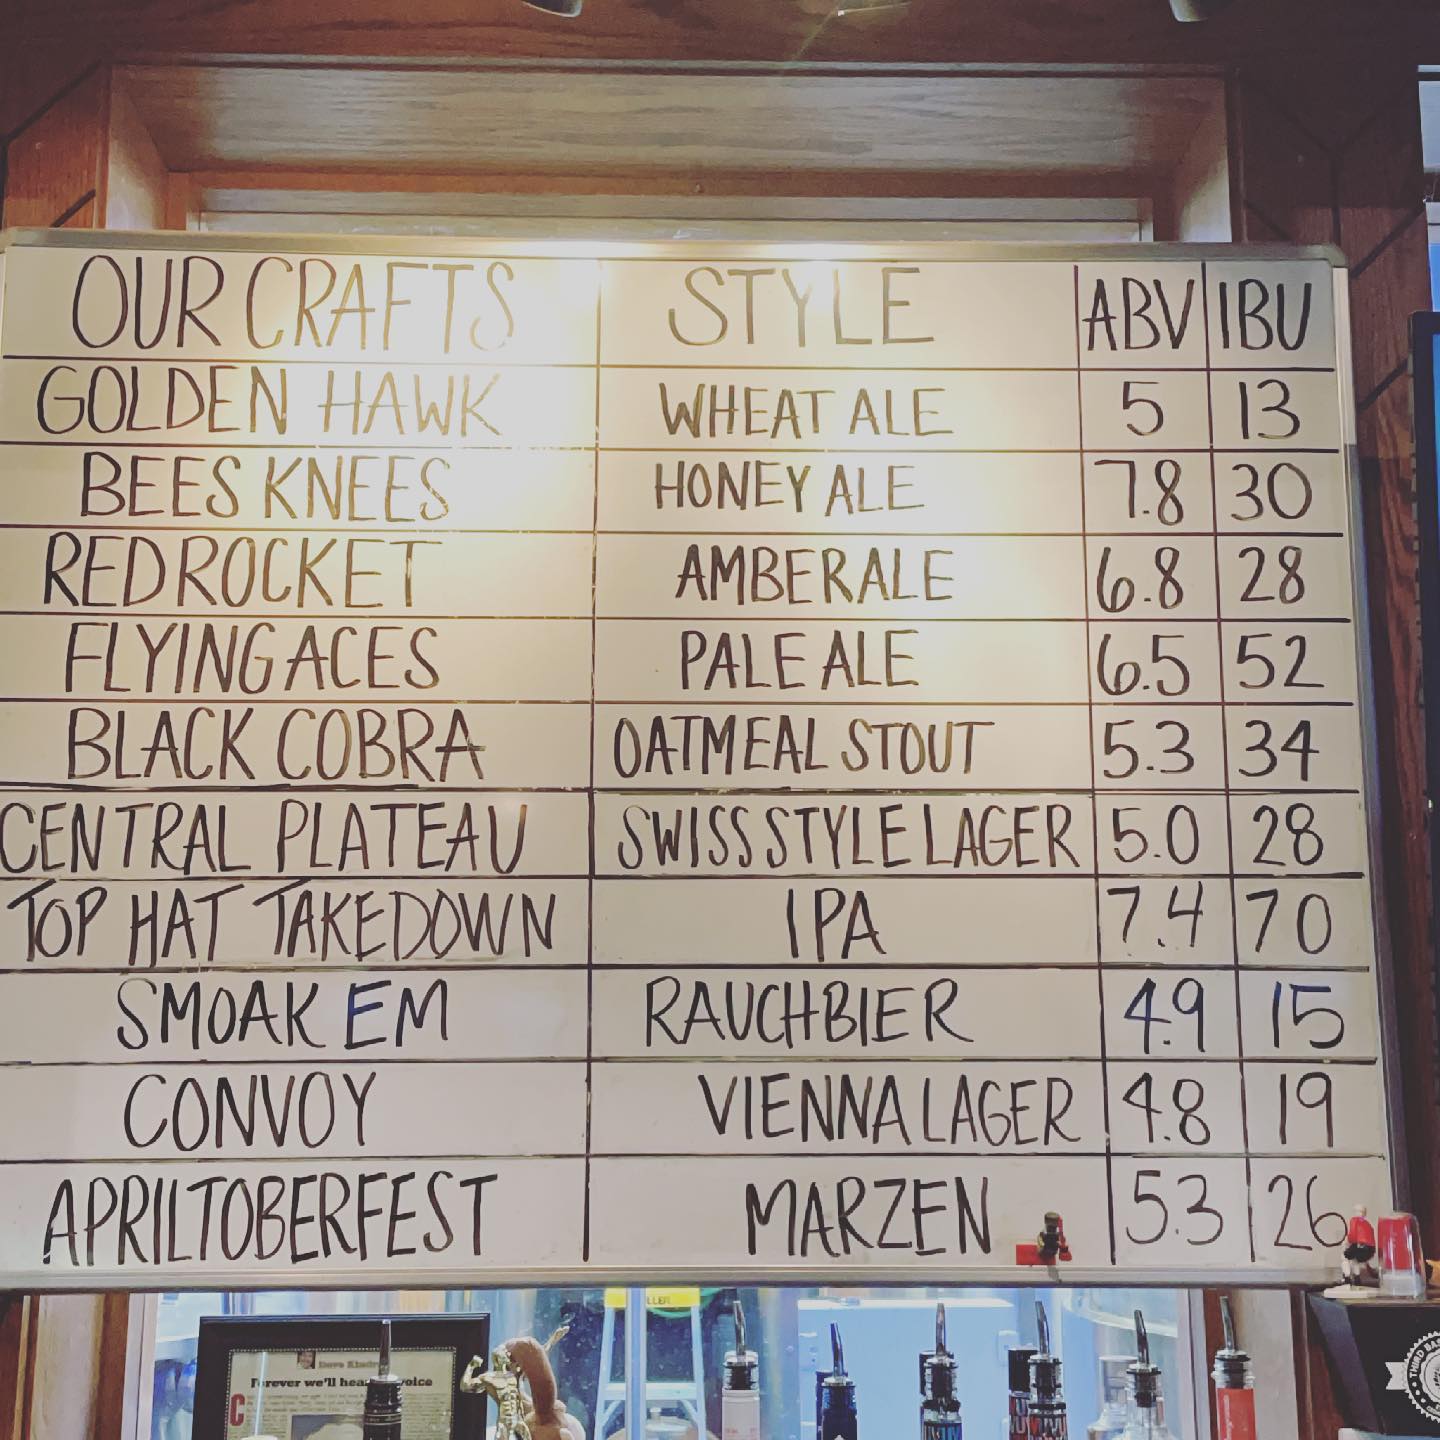 OUR CRAFTS STYLE ABV IBU
GOLDEN HAWK WHEAT ALE 5 13
BEES KNEES HONEY ALE 7.8 30
RED ROCKET AMBER ALE 6.8 28
FLYING ACES PALE ALE 6.5 52
BLACK COBRA OATMEAL STOUT 5.3 34
CENTRAL PLATEAU SWISS STYLE LAGER 5.0 28
TOP HAT TAKEDOWN IPA 7.4 70
SMOAK EM RAUCHBIER 4.9 15
CONVOY VIENNA LAGER 4.8 19
APRILTOBERFEST MARZEN 5.3 26
Dave
Forever we'll voice
THIRD